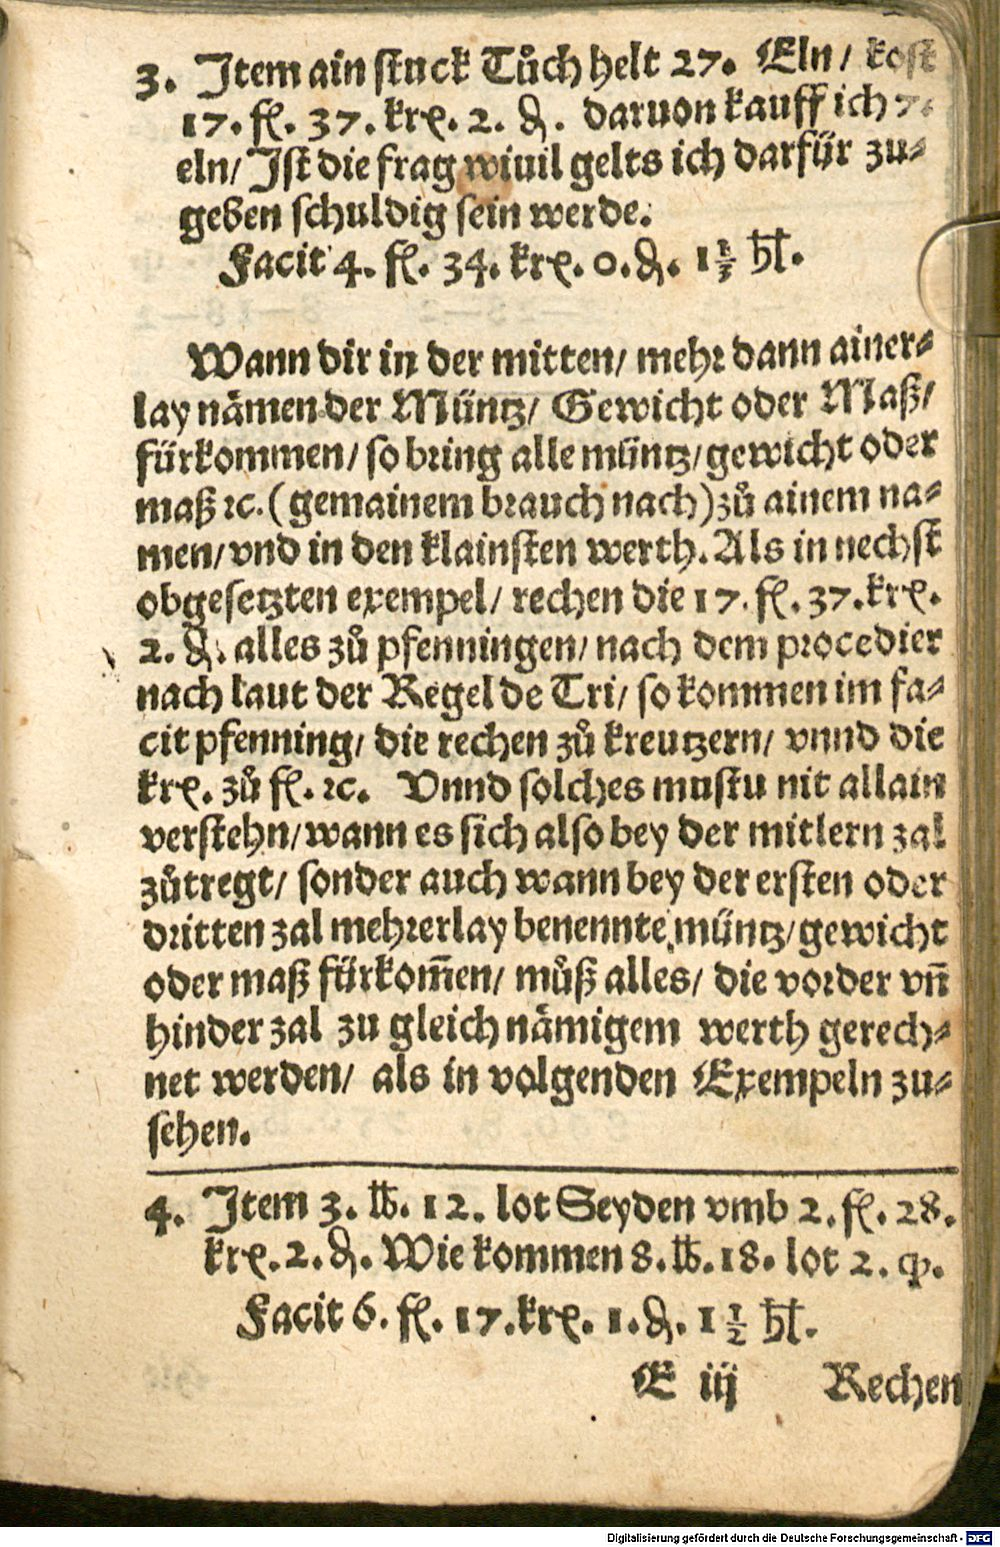 3. Item ain stuck Tůch helt 27. Eln / kost
17. fl. 37. krꝛ. 2. ₰. daruon kauff ich 7.
eln / Ist die frag wiuil gelts ich darfür zu⸗
geben schuldig sein werde.
Facit 4. fl. 34. krꝛ. 0. ₰. 1 1/3 hl.
Wann dir in der mitten / mehr dann ainer⸗
lay nämen der Müntz / Gewicht oder Maß /
fürkommen / so bring alle müntz / gewicht oder
maß ꝛc. (gemainem brauch nach) zů ainem na⸗
men / vnd in den klainsten werth. Als in nechst
obgesetzten exempel / rechen die 17. fl. 37. krꝛ.
2. ₰. alles zů pfenningen / nach dem procedier
nach laut der Regel de Tri / so kommen im fa⸗
cit pfenning / die rechen zů kreutzern / vnnd die
krꝛ. zů fl. ꝛc. Vnnd solches mustu nit allain
verstehn / wann es sich also bey der mitlern zal
zůtregt / sonder auch wann bey der ersten oder
dritten zal mehrerlay benennte müntz / gewicht
oder maß fürkom̃en / můß alles / die vorder vñ
hinder zal zu gleich nämigem werth gerech⸗
net werden / als in volgenden Exempeln zu⸗
sehen.
4. Item 3. ℔. 12. lot Seyden vmb 2. fl. 28.
krꝛ. 2. ₰. Wie kommen 8. ℔. 18. lot 2. qͥ.
Facit 6. fl. 17. krꝛ. 1. ₰. 1 1/2 hl.
E iij Rechen
Digitalisierung gefördert durch die Deutsche Forschungsgemeinschaft - DFG